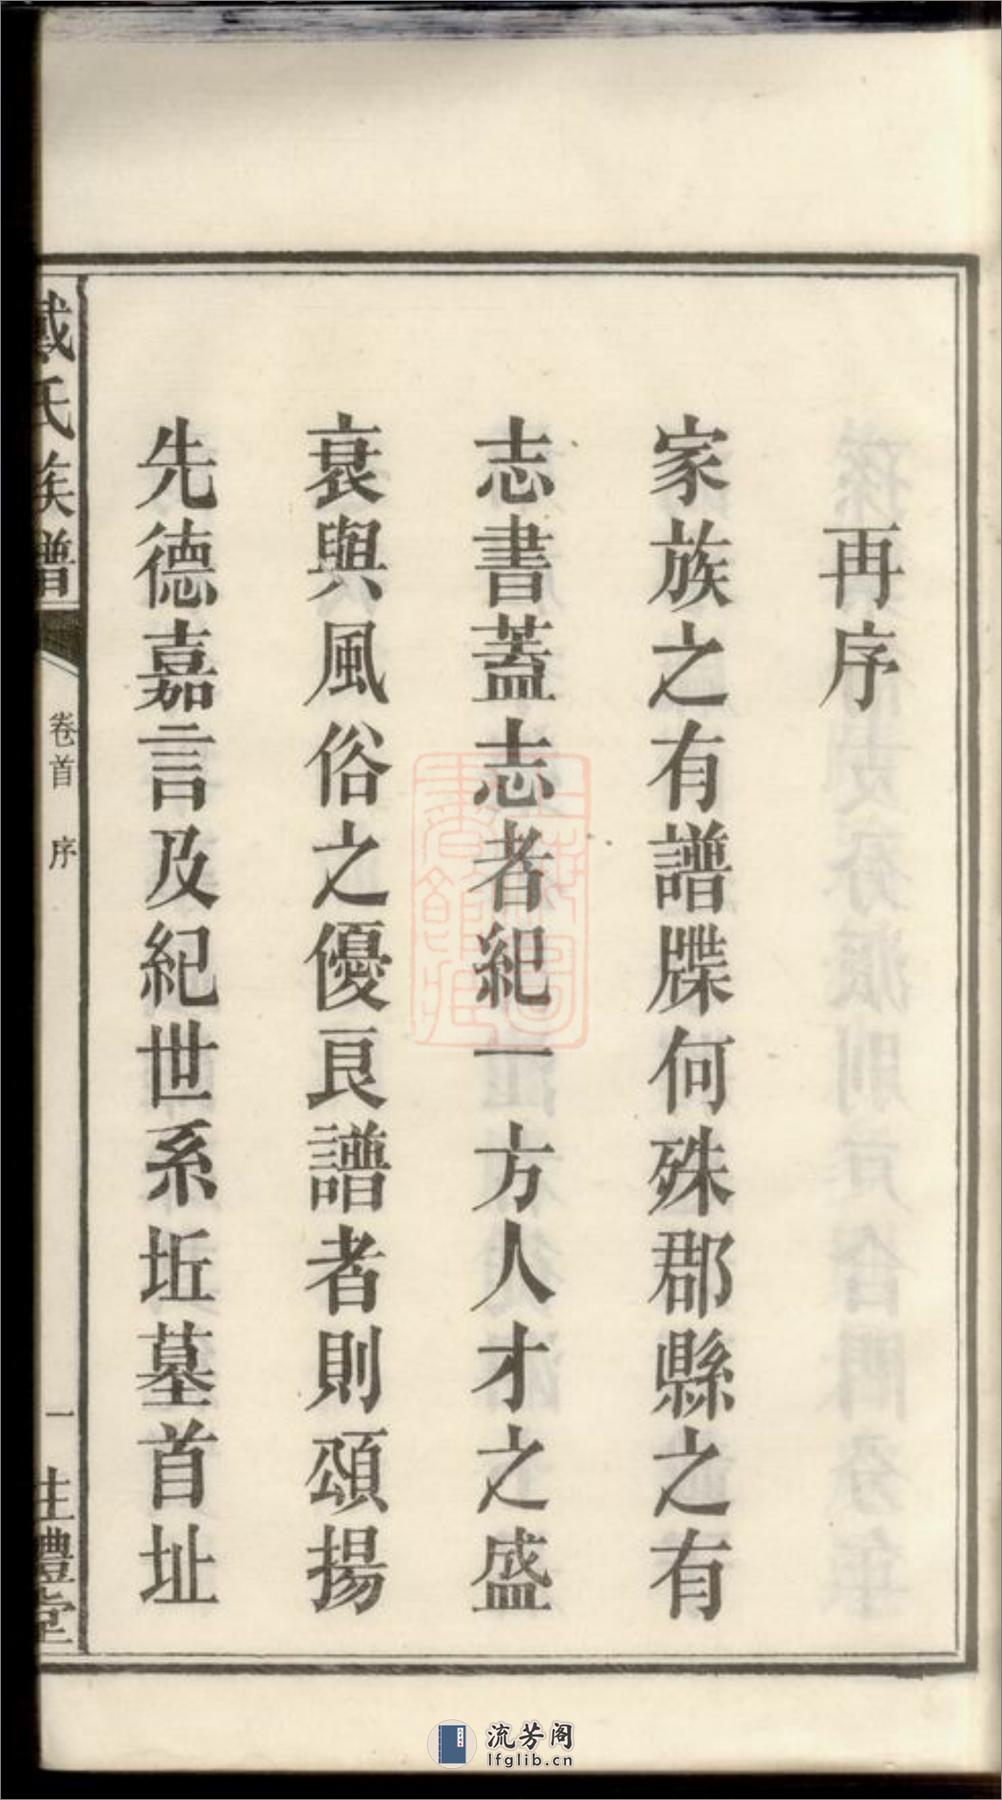 再序
家族之有譜牒何殊郡縣之有
志書蓋志者紀一方人才之盛
衰與風俗之優良譜者則頌揚
先德嘉言及紀世系坵墓首址
戴氏族譜
卷首 序
一
注禮堂
流芳阁
lfglib.cn